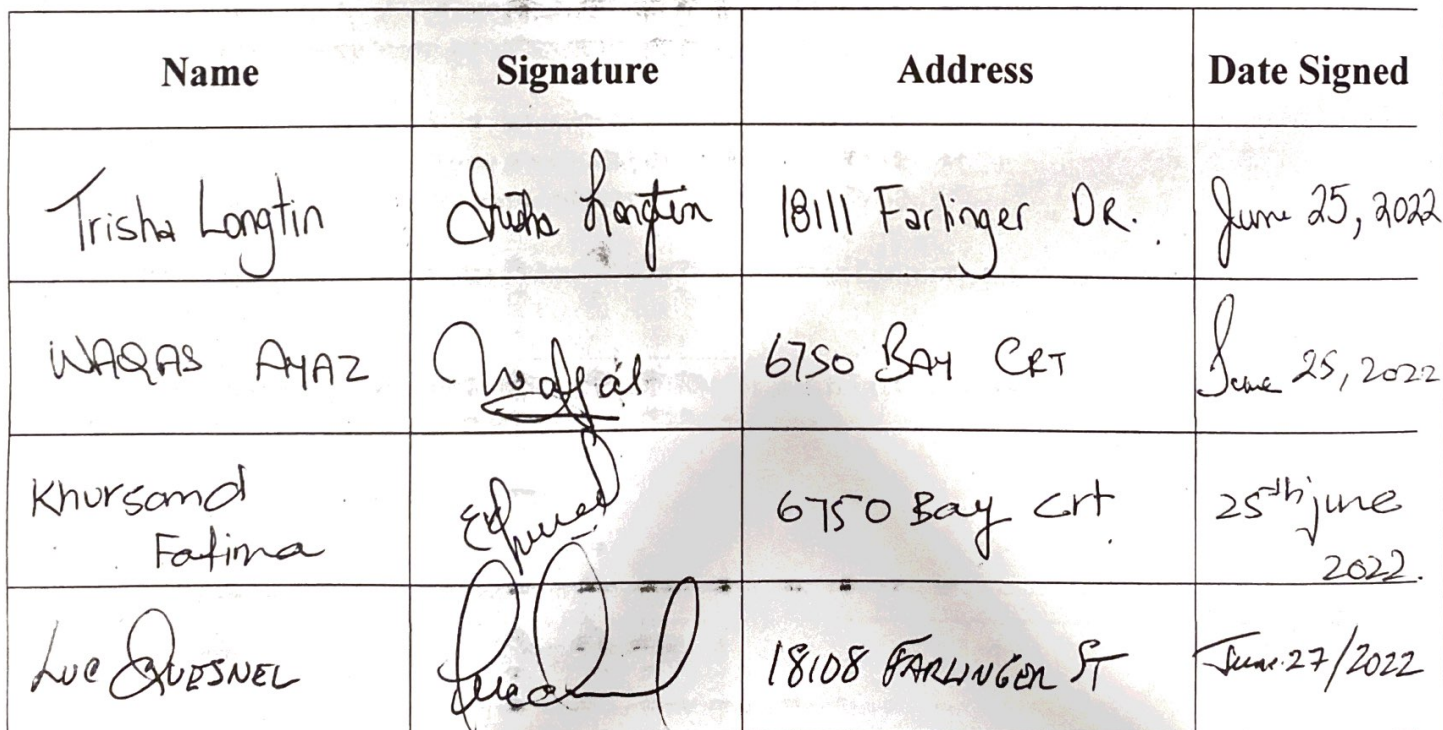 Name Signature Address Date Signed
Trisha Longtin Trisha Longtin 18111 Farlinger DR. June 25, 2022
WAQAS AYAZ Waqas 6750 BAY CRT June 25, 2022
Khursand 6750 Bay crt 25th june
Fatima 2022.
Luc QUESNEL 18108 FARLINGER ST June 27/2022